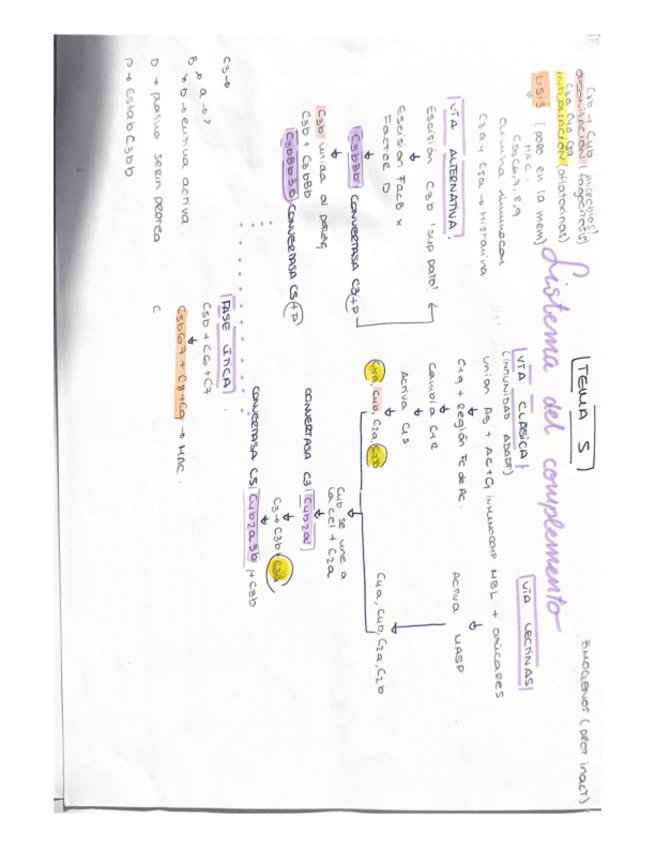 TEMA 5
Sistema del complemento
ZIMOGENOS (PROT inact)
C3b y C4b
OPSONIZACIÓN (fagocitosis)
C3a C4a C5a
INFLAMACIÓN (anafilatoxinas)
LISIS (poro en la mem)
MAC:
C5b6,7,8,9
C3a y C5a → Histamina
VÍA ALTERNATIVA
Escisión C3b sup patol
Escisión FacB x
Factor D
C3bBb CONVERTASA C3 + P
C3b unida al patóg
C3b + C3bBb
C3bBb3b CONVERTASA C5 + P
VÍA CLASICA
(INMUNIDAD ADAPT)
unión Ag + AC + C1
C1q + Región Fc de Ac.
Cambia C1r
Activa C1s
C4a, C4b, C2a, C2b
C4b se une a
la cel + C2a
CONVERTASA C3 C4b2a
C3 → C3b + C3a
CONVERTASA C5 C4b2a3b + C3b
VÍA LECTINAS
MBL + azúcares
Activa MASP
C4a, C4b, C2a, C2b
FASE LÍTICA
C5b + C6 + C7
C5b67 + C8 + C9 → MAC.
C3 →
B → a → ?
b → entiva activa.
D → pasiva serin protea
P → Estab C3bb
C